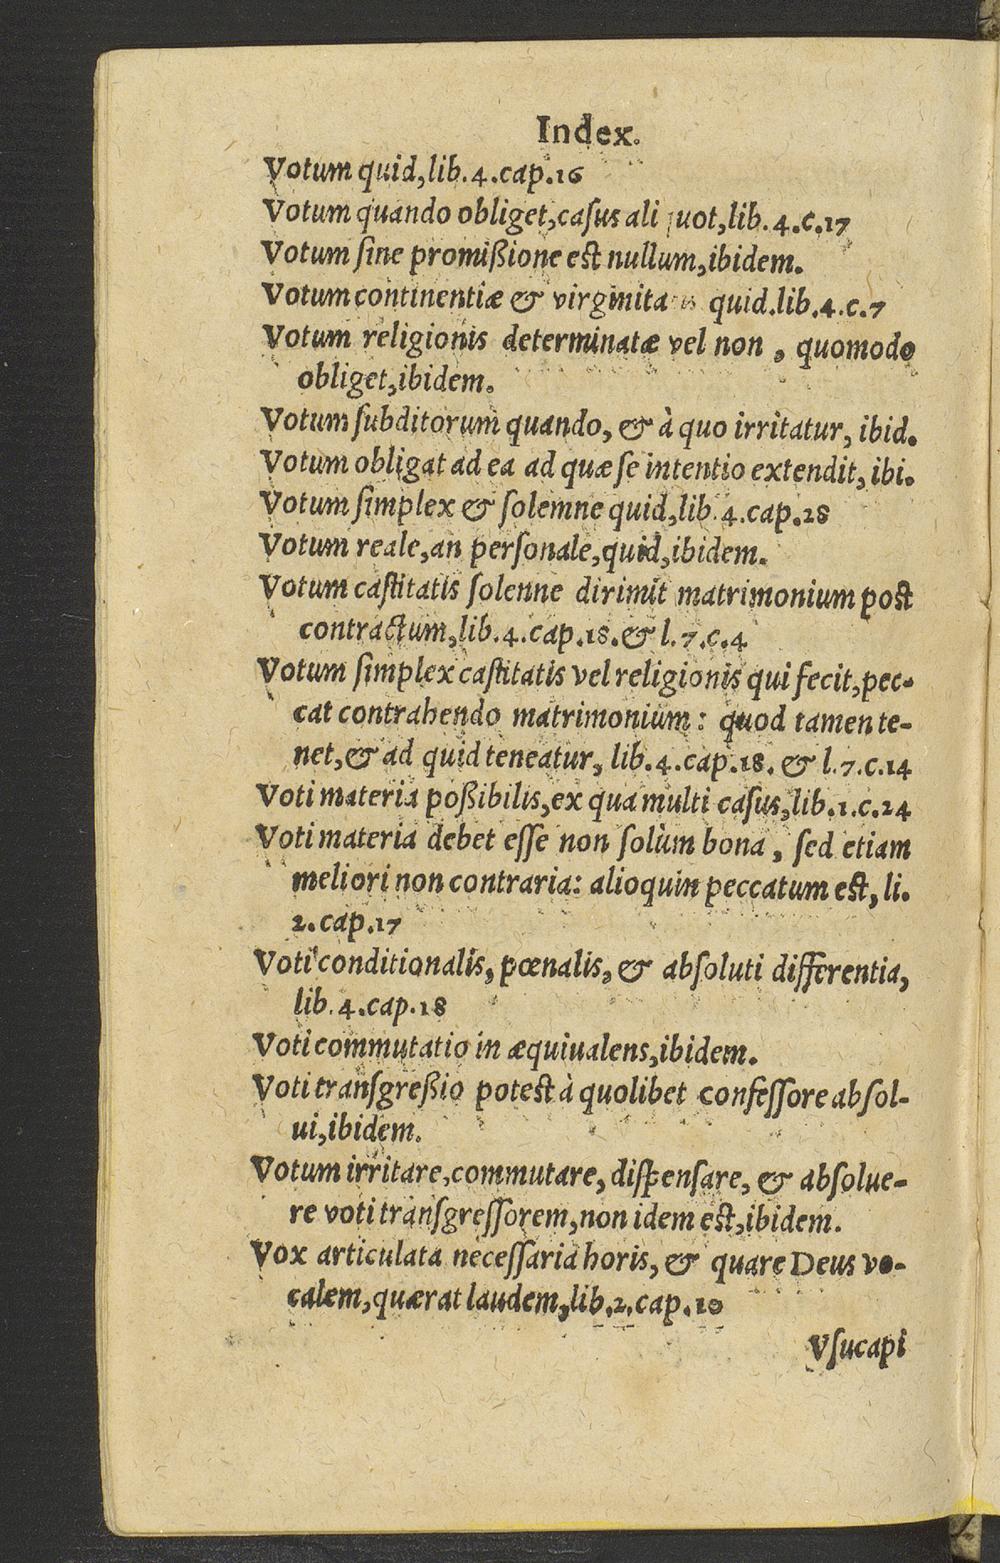 Index.
Votum quid, lib. 4. cap. 16
Votum quando obliget, caſus ali quot, lib. 4. c. 17
Votum ſine promißione est nullum, ibidem.
Votum continentiæ & virginita is quid. lib. 4. c. 7
Votum religionis determinatæ vel non, quomodo
obliget, ibidem.
Votum ſubditorum quando, & à quo irritatur, ibid.
Votum obligat ad ea ad quæ ſe intentio extendit, ibi.
Votum ſimplex & ſolemne quid, lib. 4. cap. 28
Votum reale, an perſonale, quid, ibidem.
Votum caſtitatis ſolenne dirimit matrimonium post
contractum, lib. 4. cap. 18. & l. 7. c. 4
Votum ſimplex caſtitatis vel religionis qui fecit, pec-
cat contrahendo matrimonium: quod tamen te-
net, & ad quid teneatur, lib. 4. cap. 18. & l. 7. c. 14
Voti materia poßibilis, ex qua multi caſus, lib. 1. c. 24
Voti materia debet eſſe non ſolùm bona, ſed etiam
meliori non contraria: alioquin peccatum est, li.
2. cap. 17
Voti conditionalis, pœnalis, & abſoluti differentia,
lib. 4. cap. 18
Voti commutatio in æquiualens, ibidem.
Voti tranſgreßio potest à quolibet confeſſore abſol-
ui, ibidem.
Votum irritare, commutare, diſpenſare, & abſolue-
re voti tranſgreſſorem, non idem est, ibidem.
Vox articulata neceſſaria horis, & quare Deus vo-
calem, quærat laudem, lib. 2. cap. 10
Vſucapi